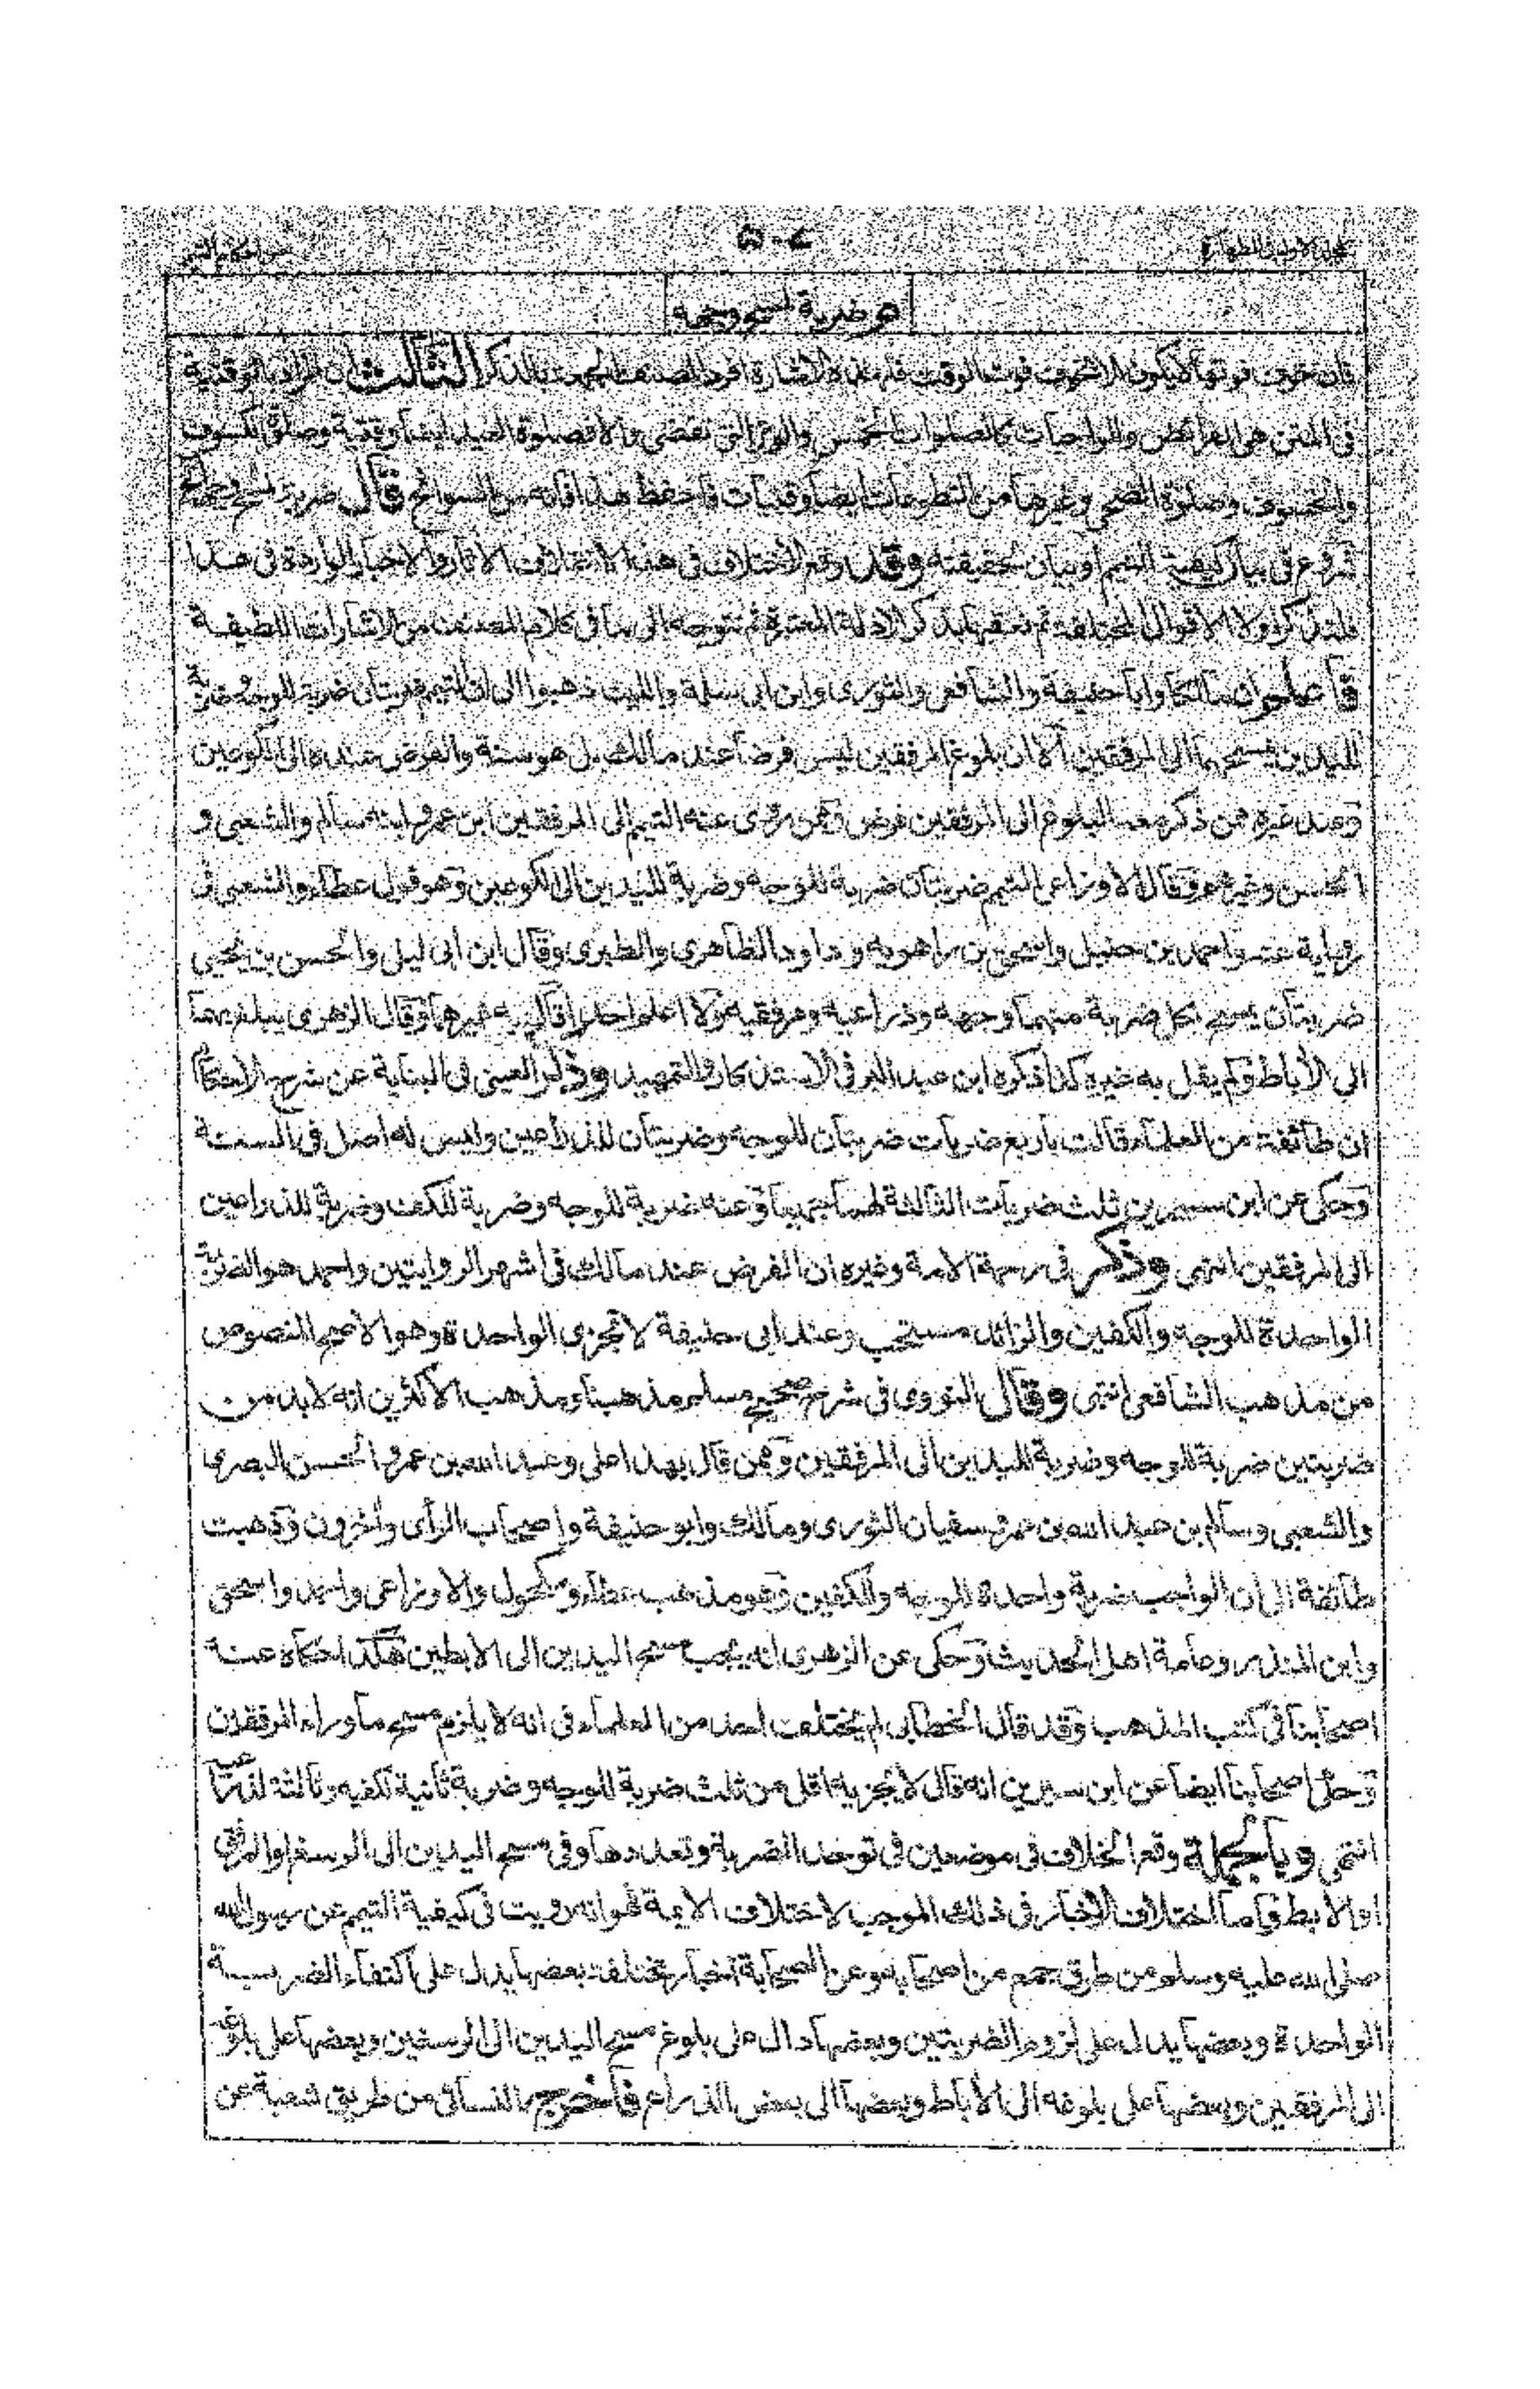 المجلد الاول الطهارة
٥٠٧
هو ضربة لمسح وجهه
فان خوف فوتها لا يكون الا لخوف فوت الوقت فلهذه الاشارة افرد المصنف الجمعة بالذكر الثالث ان المراد بالوقتية
فى المتن هى الفرائض والواجبات كالصلوات الخمس والوتر التى تقضى والا فصلوة العيد ايضا وقتية وصلوة الكسوف
والخسوف وصلوة الضحى وغيرها من التطوعات ايضا وقتيات فاحفظ هذا فانه من السوانح قال ضربة لمسح وجهه الخ
شروع فى بيان كيفية التيمم او بيان لحقيقته وقد وقع الاختلاف فى هذا لاختلاف الآثار والاخبار الواردة فى هذا
فلنذكر اولا الاقوال المختلفة ثم نعقبها بذكر الادلة المعتبرة ثم نتوجه الى ما فى كلام المصنف من الاشارات اللطيفة
فاعلم ان مالكا وابا حنيفة والشافعى والثورى وابن ابى سلمة والليث ذهبوا الى ان التيمم ضربتان ضربة للوجه وضربة
لليدين يمسحهما الى المرفقين الا ان بلوغ المرفقين ليس فرضا عند مالك بل هو سنة والفرض عنده الى الكوعين
وعند غيره ممن ذكر معه البلوغ الى المرفقين فرض وممن روى عنه التيمم الى المرفقين ابن عمر وابنه سالم والشعبى و
الحسن وغيرهم وقال الاوزاعى التيمم ضربتان ضربة للوجه وضربة لليدين الى الكوعين وهو قول عطاء والشعبى فى
رواية عنه واحمد بن حنبل واسحق بن راهويه وداود الظاهرى والطبرى وقال ابن ابى ليلى والحسن بن يحيى
ضربتان يمسح بكل ضربة منهما وجهه وذراعيه ومرفقيه ولا اعلم احدا قال به غيرهما وقال الزهرى يبلغ بهما
الى الآباط ولم يقل به غيره كذا ذكره ابن عبد البر فى الاستذكار والتمهيد وذكر العينى فى البناية عن شرح الاحكام
ان طائفة من العلماء قالت باربع ضربات ضربتان للوجه وضربتان للذراعين وليس له اصل فى السنة
وحكى عن ابن سيرين ثلث ضربات الثالثة لهما جميعا وعنه ضربة للوجه وضربة للكف وضربة للذراعين
الى المرفقين انتهى وذكر فى رحمة الامة وغيره ان الفرض عند مالك فى اشهر الروايتين واحمد هو الضربة
الواحدة للوجه والكفين والزائد مستحب وعند ابى حنيفة لا تجزى الواحدة وهو الاصح المنصوص
من مذهب الشافعى انتهى وقال النووى فى شرح صحيح مسلم مذهبنا ومذهب الاكثرين انه لا بد من
ضربتين ضربة للوجه وضربة لليدين الى المرفقين وممن قال بهذا على وعبد الله بن عمر والحسن البصرى
والشعبى وسالم بن عبد الله بن عمر وسفيان الثورى ومالك وابو حنيفة واصحاب الرأى وآخرون وذهبت
طائفة الى ان الواجب ضربة واحدة للوجه والكفين وهو مذهب عطاء ومكحول والاوزاعى واحمد واسحق
وابن المنذر وعامة اهل الحديث وحكى عن الزهرى انه يجب مسح اليدين الى الابطين هكذا حكاه عنه
اصحابنا فى كتب المذهب وقد قال الخطابى لم يختلف احد من العلماء فى انه لا يلزم مسح ما وراء المرفقين
وحكى اصحابنا ايضا عن ابن سيرين انه قال لا يجزيه اقل من ثلث ضربة للوجه وضربة ثانية لكفيه وثالثة لذراعيه
انتهى وبالجملة وقع الخلاف فى موضعين فى توحد الضربة وتعددها وفى مسح اليدين الى الرسغ او المرفق
او الابط واما اختلاف الاخبار فى ذلك الموجب لاختلاف الامة فهو انه رويت فى كيفية التيمم عن رسول الله
صلى الله عليه وسلم من طرق جمع من اصحابه وعن الصحابة اخبار مختلفة بعضها يدل على اكتفاء الضربة
الواحدة وبعضها يدل على لزوم الضربتين وبعضها دال على بلوغ مسح اليدين الى الرسغين وبعضها على بلوغه
الى المرفقين وبعضها على بلوغه الى الآباط وبعضها الى بعض الذراع فأخرج النسائى من طريق شعبة عن